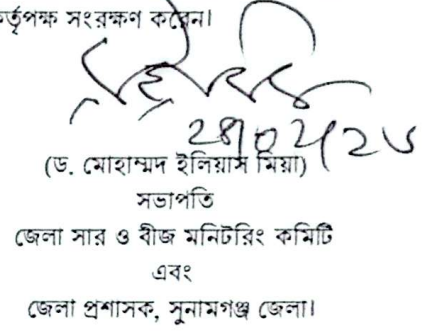 র্তৃপক্ষ সংরক্ষণ করেন।
(ড. মোহাম্মদ ইলিয়াস মিয়া)
সভাপতি
জেলা সার ও বীজ মনিটরিং কমিটি
এবং
জেলা প্রশাসক, সুনামগঞ্জ জেলা।